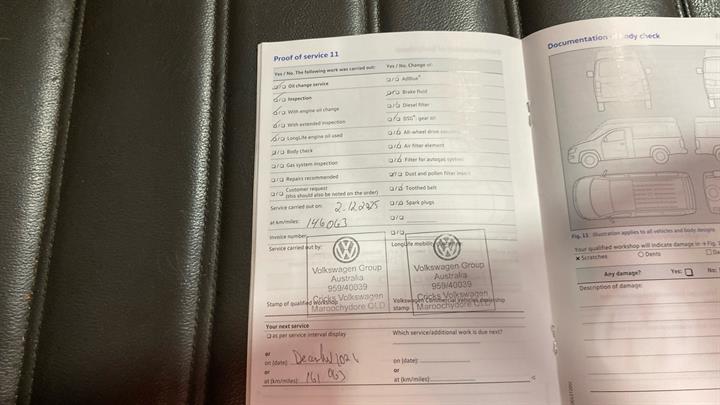 Proof of service 11
Yes / No. The following work was carried out:
Oil change service
Inspection
With engine oil change
With extended inspection
LongLife engine oil used
Body check
Gas system inspection
Repairs recommended
Customer request
(this should also be noted on the order)
Service carried out on: 2.12.2025
at km/miles: 146063
Invoice number
Service carried out by:
Volkswagen Group
Australia
959/40039
Cricks Volkswagen
Maroochydore QLD
Stamp of qualified workshop
Yes / No. Change of:
AdBlue®
Brake fluid
Diesel filter
DSG®: gear oil
All-wheel drive
Air filter element
Filter for autogas system
Dust and pollen filter insert
Toothed belt
Spark plugs
LongLife mobility
Volkswagen Group
Australia
959/40039
Cricks Volkswagen
Maroochydore QLD
Volkswagen Commercial Vehicles dealership
stamp
Your next service
as per service interval display
or
on (date):
or
at (km/miles): 161 063
Which service/additional work is due next?
on (date):
or
at (km/miles):
Documentation of body check
Fig. 11 Illustration applies to all vehicles and body designs
Your qualified workshop will indicate damage in → Fig.
× Scratches ○ Dents
Any damage? Yes: No:
Description of damage: